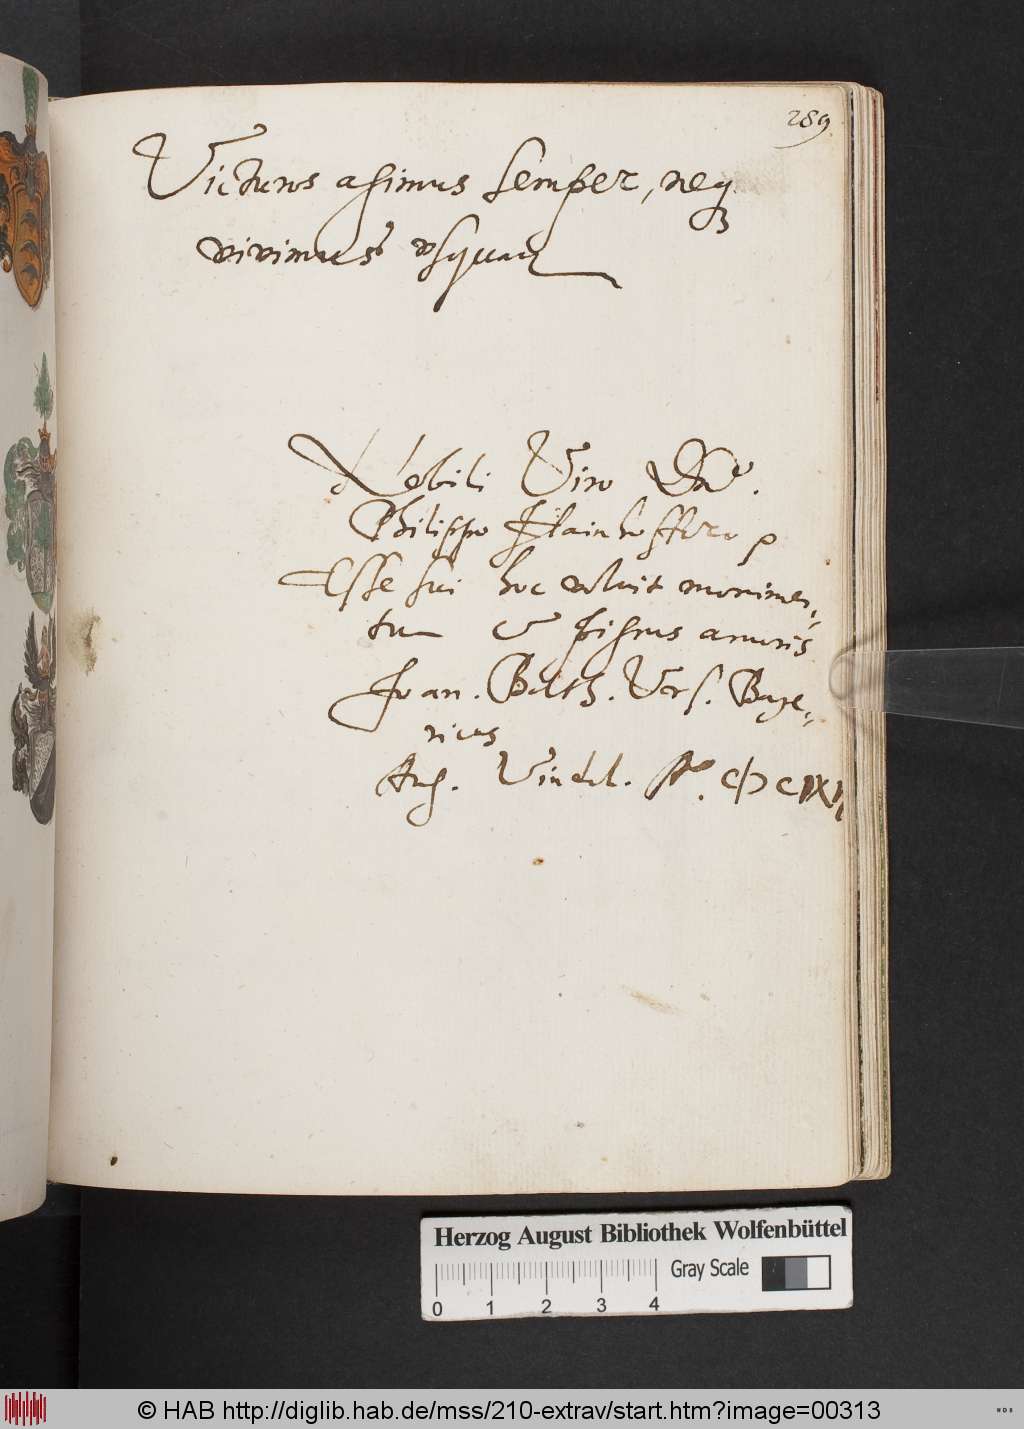 289
Victuros agimus semper, neq;
vivimus vsquam
Nobili Viro Dno.
Philippo Hainhoffero
Esse sui hoc voluit monimen,,
tum & pignus amoris
Joan. Balth. Bage,,
ricus
Aug. Vindel.
Herzog August Bibliothek Wolfenbüttel
Gray Scale
0 1 2 3 4
© HAB http://diglib.hab.de/mss/210-extrav/start.htm?image=00313